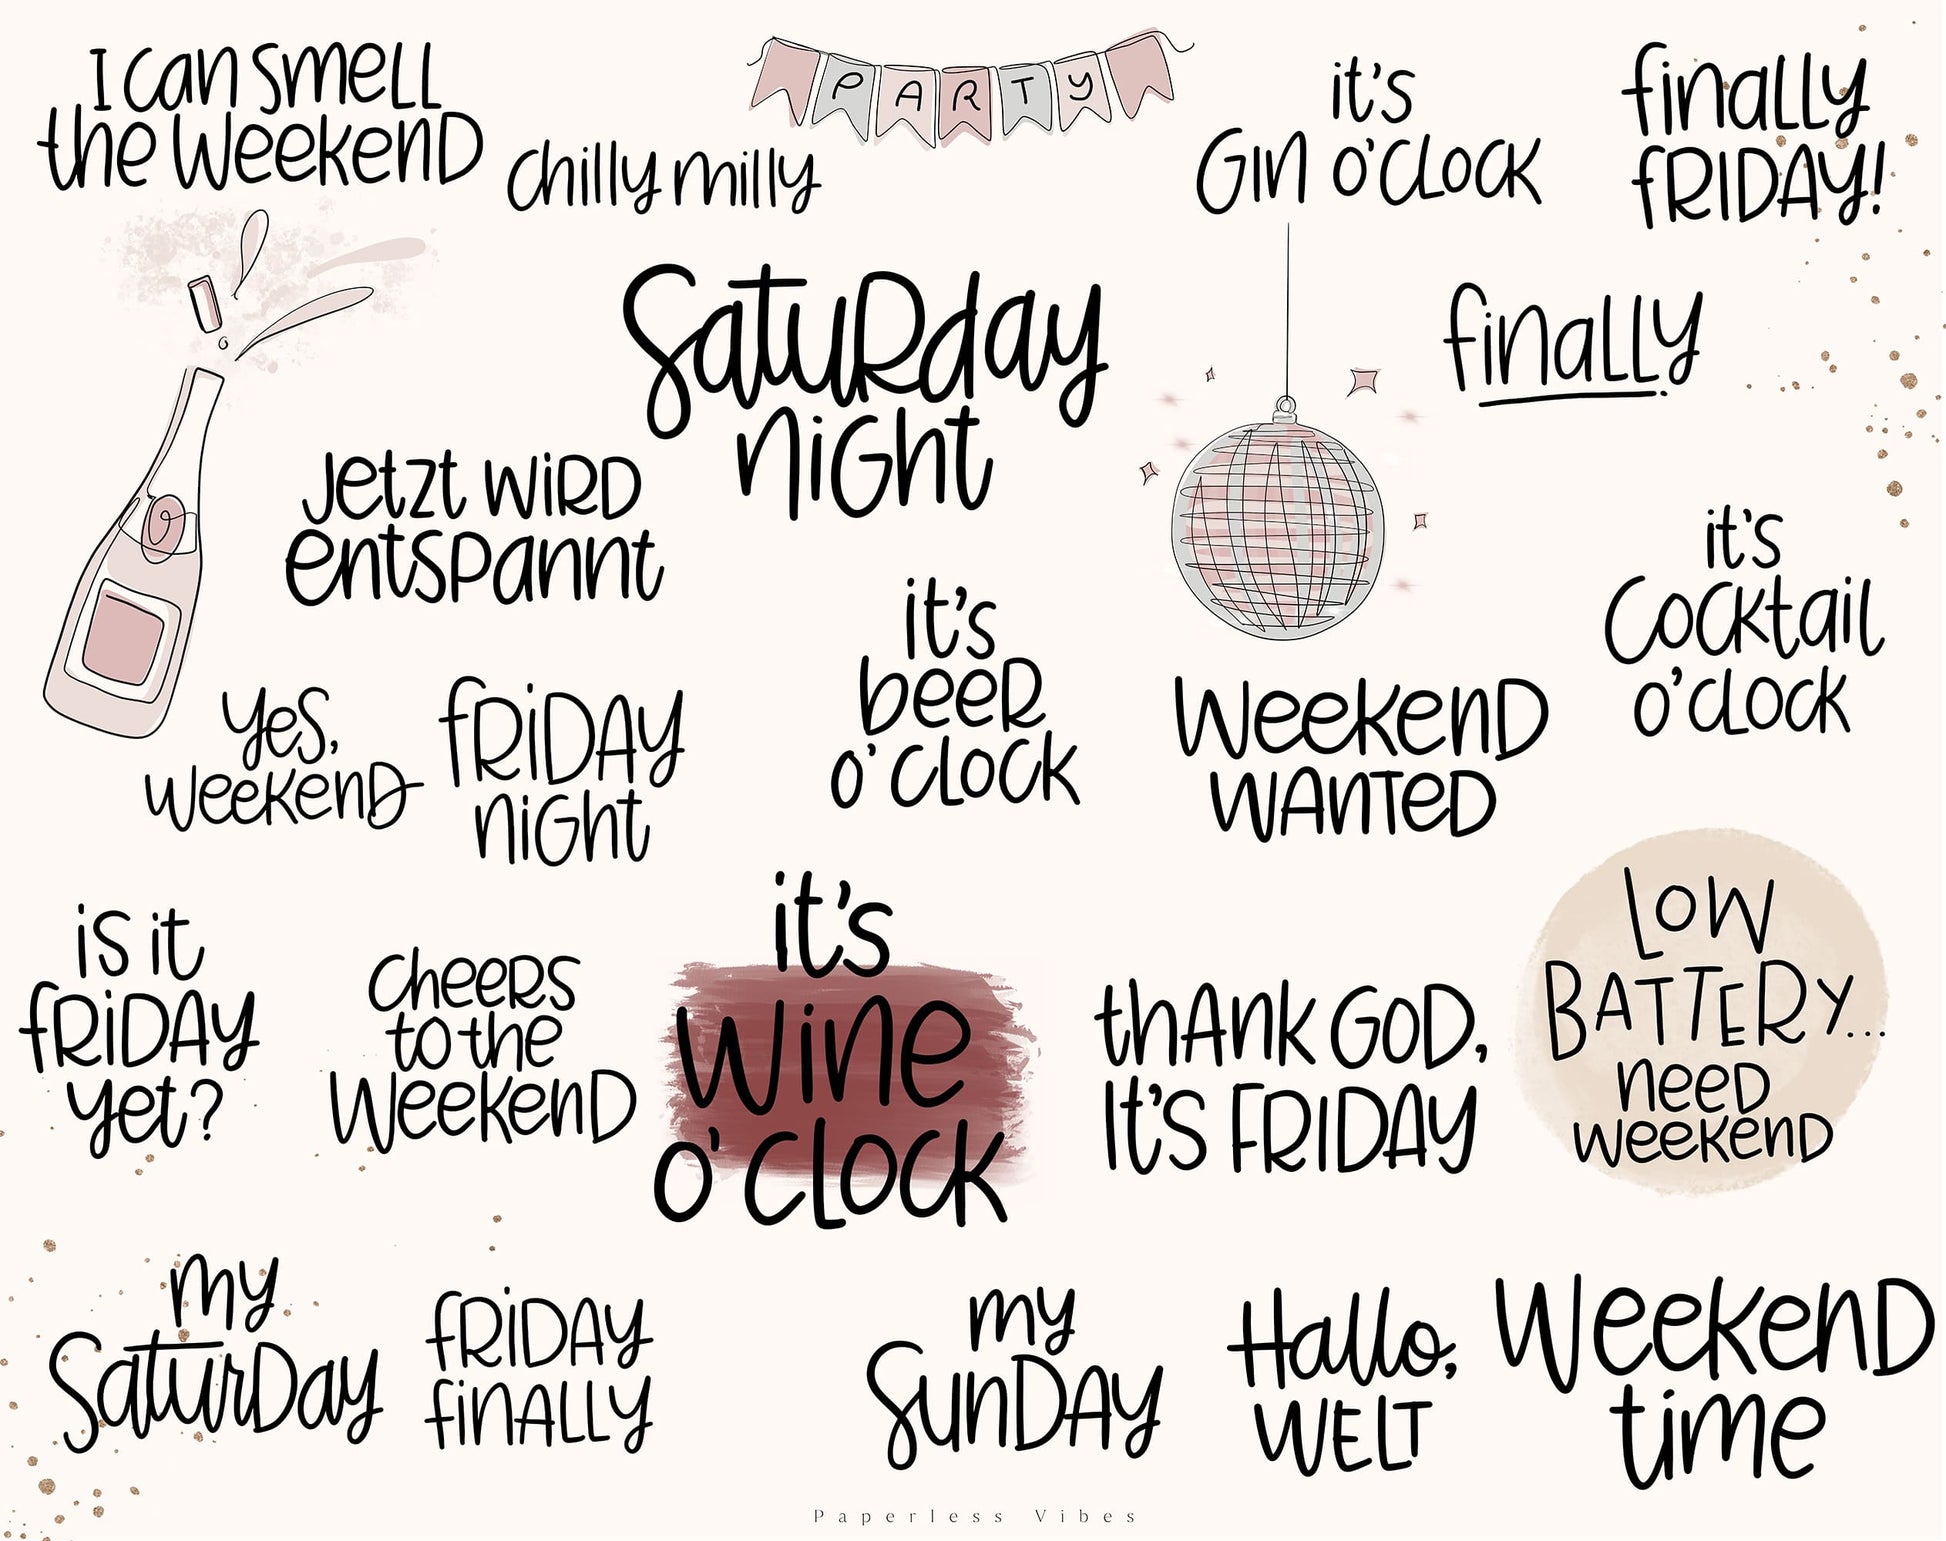 I can smell
the weekend
PARTY
chilly milly
it's
Gin o'clock
finally
FRIDAY!
Saturday
night
finally
Jetzt wird
entspannt
it's
beer
o'clock
it's
Cocktail
o'clock
yes,
weekend
FRIDAY
night
weekend
wanted
is it
FRIDAY
yet?
cheers
to the
weekend
it's
wine
o'clock
thank God,
it's FRIDAY
LOW
BATTERY...
need
weekend
my
Saturday
FRIDAY
finally
my
Sunday
Hallo,
WELT
Weekend
time
Paperless Vibes